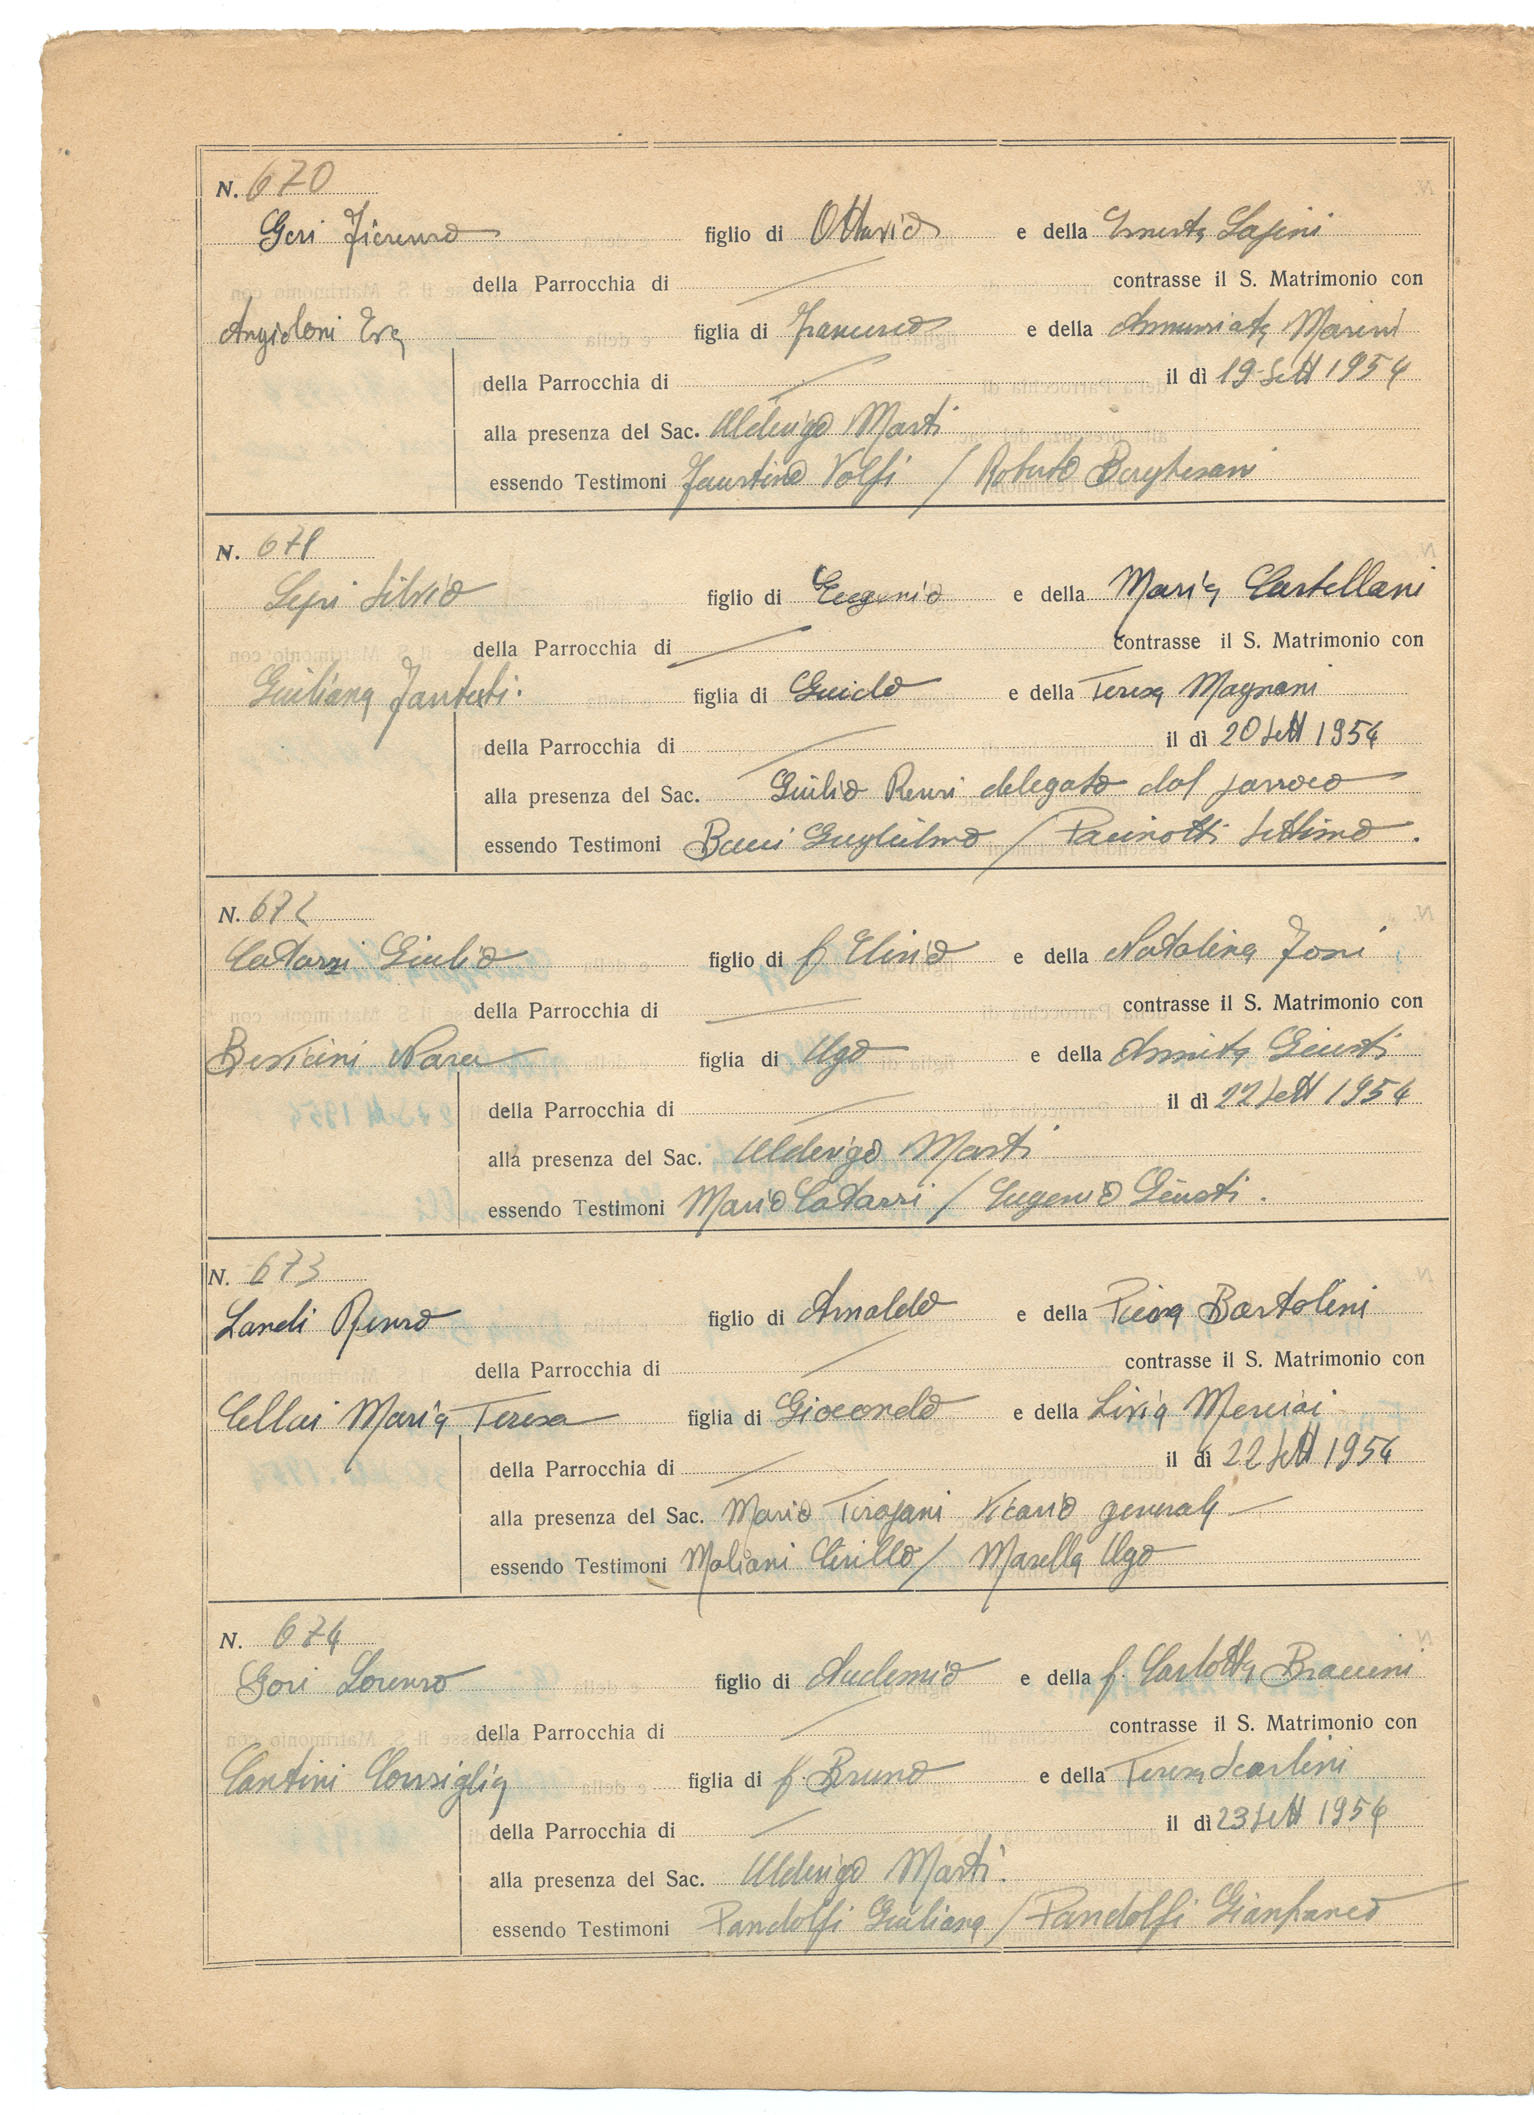 N. 670
Geri Fiorenzo figlio di Ottavio e della Ernesta Lapini
della Parrocchia di contrasse il S. Matrimonio con
Angioloni Eva figlia di Francesco e della Annunziata Marini
della Parrocchia di il dì 19 Sett 1954
alla presenza del Sac. Alderigo Marti
essendo Testimoni Faustino Volfi / Roberto Borghesani
N. 671
Lepri Silvio figlio di Eugenio e della Maria Castellani
della Parrocchia di contrasse il S. Matrimonio con
Giuliana figlia di Guido e della Teresa Magnani
della Parrocchia di il dì 20 Sett 1954
alla presenza del Sac. Giulio Renzi delegato dal parroco
essendo Testimoni Bacci Guglielmo / Pacinotti Settimo.
N. 672
Catarzi Giulio figlio di f Elirio e della Natalina Foni
della Parrocchia di contrasse il S. Matrimonio con
Nara figlia di Ugo e della Annita Giusti
della Parrocchia di il dì 22 Sett 1954
alla presenza del Sac. Alderigo Marti
essendo Testimoni Mario Catarzi / Eugenio Giusti.
N. 673
Landi Renzo figlio di Arnaldo e della Piera Bartolini
della Parrocchia di contrasse il S. Matrimonio con
Cellai Maria Teresa figlia di Giocondo e della Livia Merciai
della Parrocchia di il dì 22 Sett 1954
alla presenza del Sac. Mario Tirapani Vicario generale
essendo Testimoni Moliani Cirillo / Masella Ugo
N. 674
Gori Lorenzo figlio di Audemio e della f. Carlotta Braccini
della Parrocchia di contrasse il S. Matrimonio con
Cantini Consiglia figlia di f. Bruno e della Teresa Scarlini
della Parrocchia di il dì 23 Sett 1954
alla presenza del Sac. Alderigo Marti.
essendo Testimoni Pandolfi Giuliana / Pandolfi Gianfranco